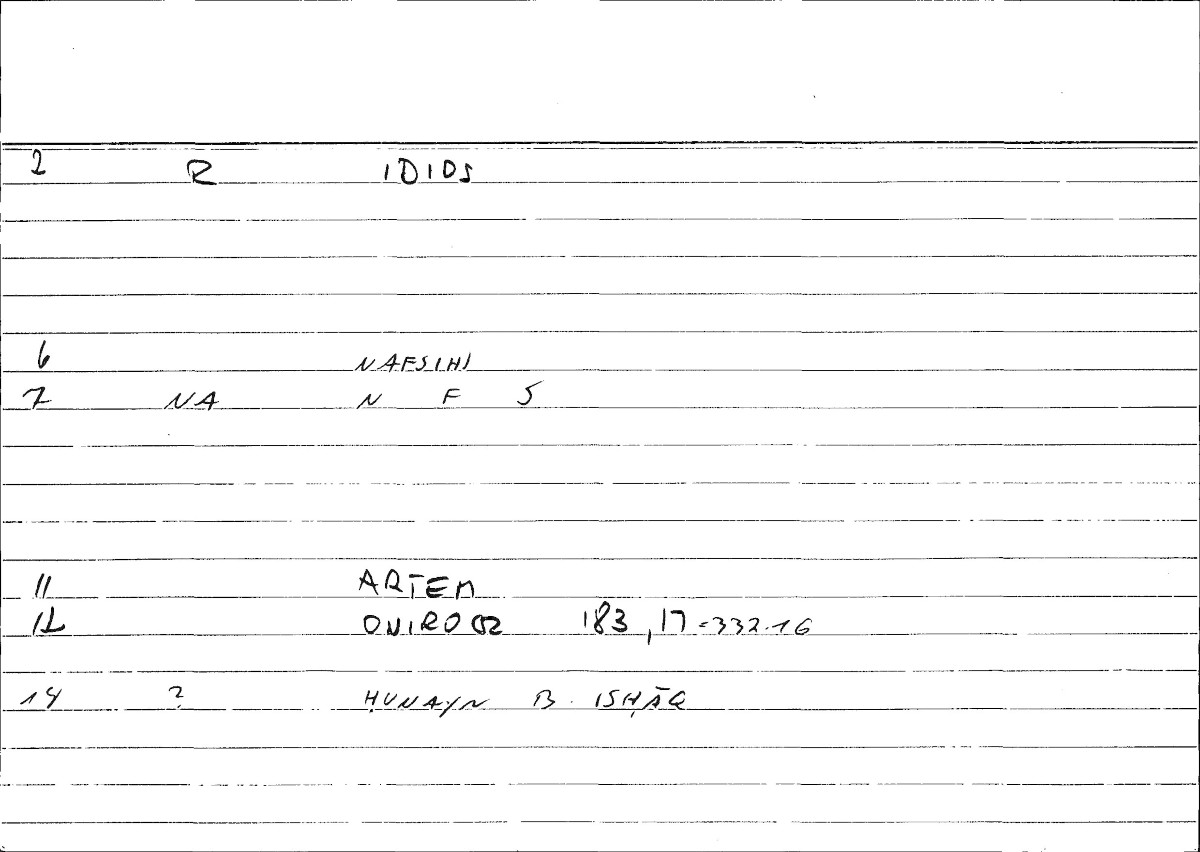 2 R IDIOS
6 NAFSIHI
7 NA N F S
11 ARTEM
12 ONIROCR 183,17=332.16
14 ? ḤUNAYN B. ISḤĀQ